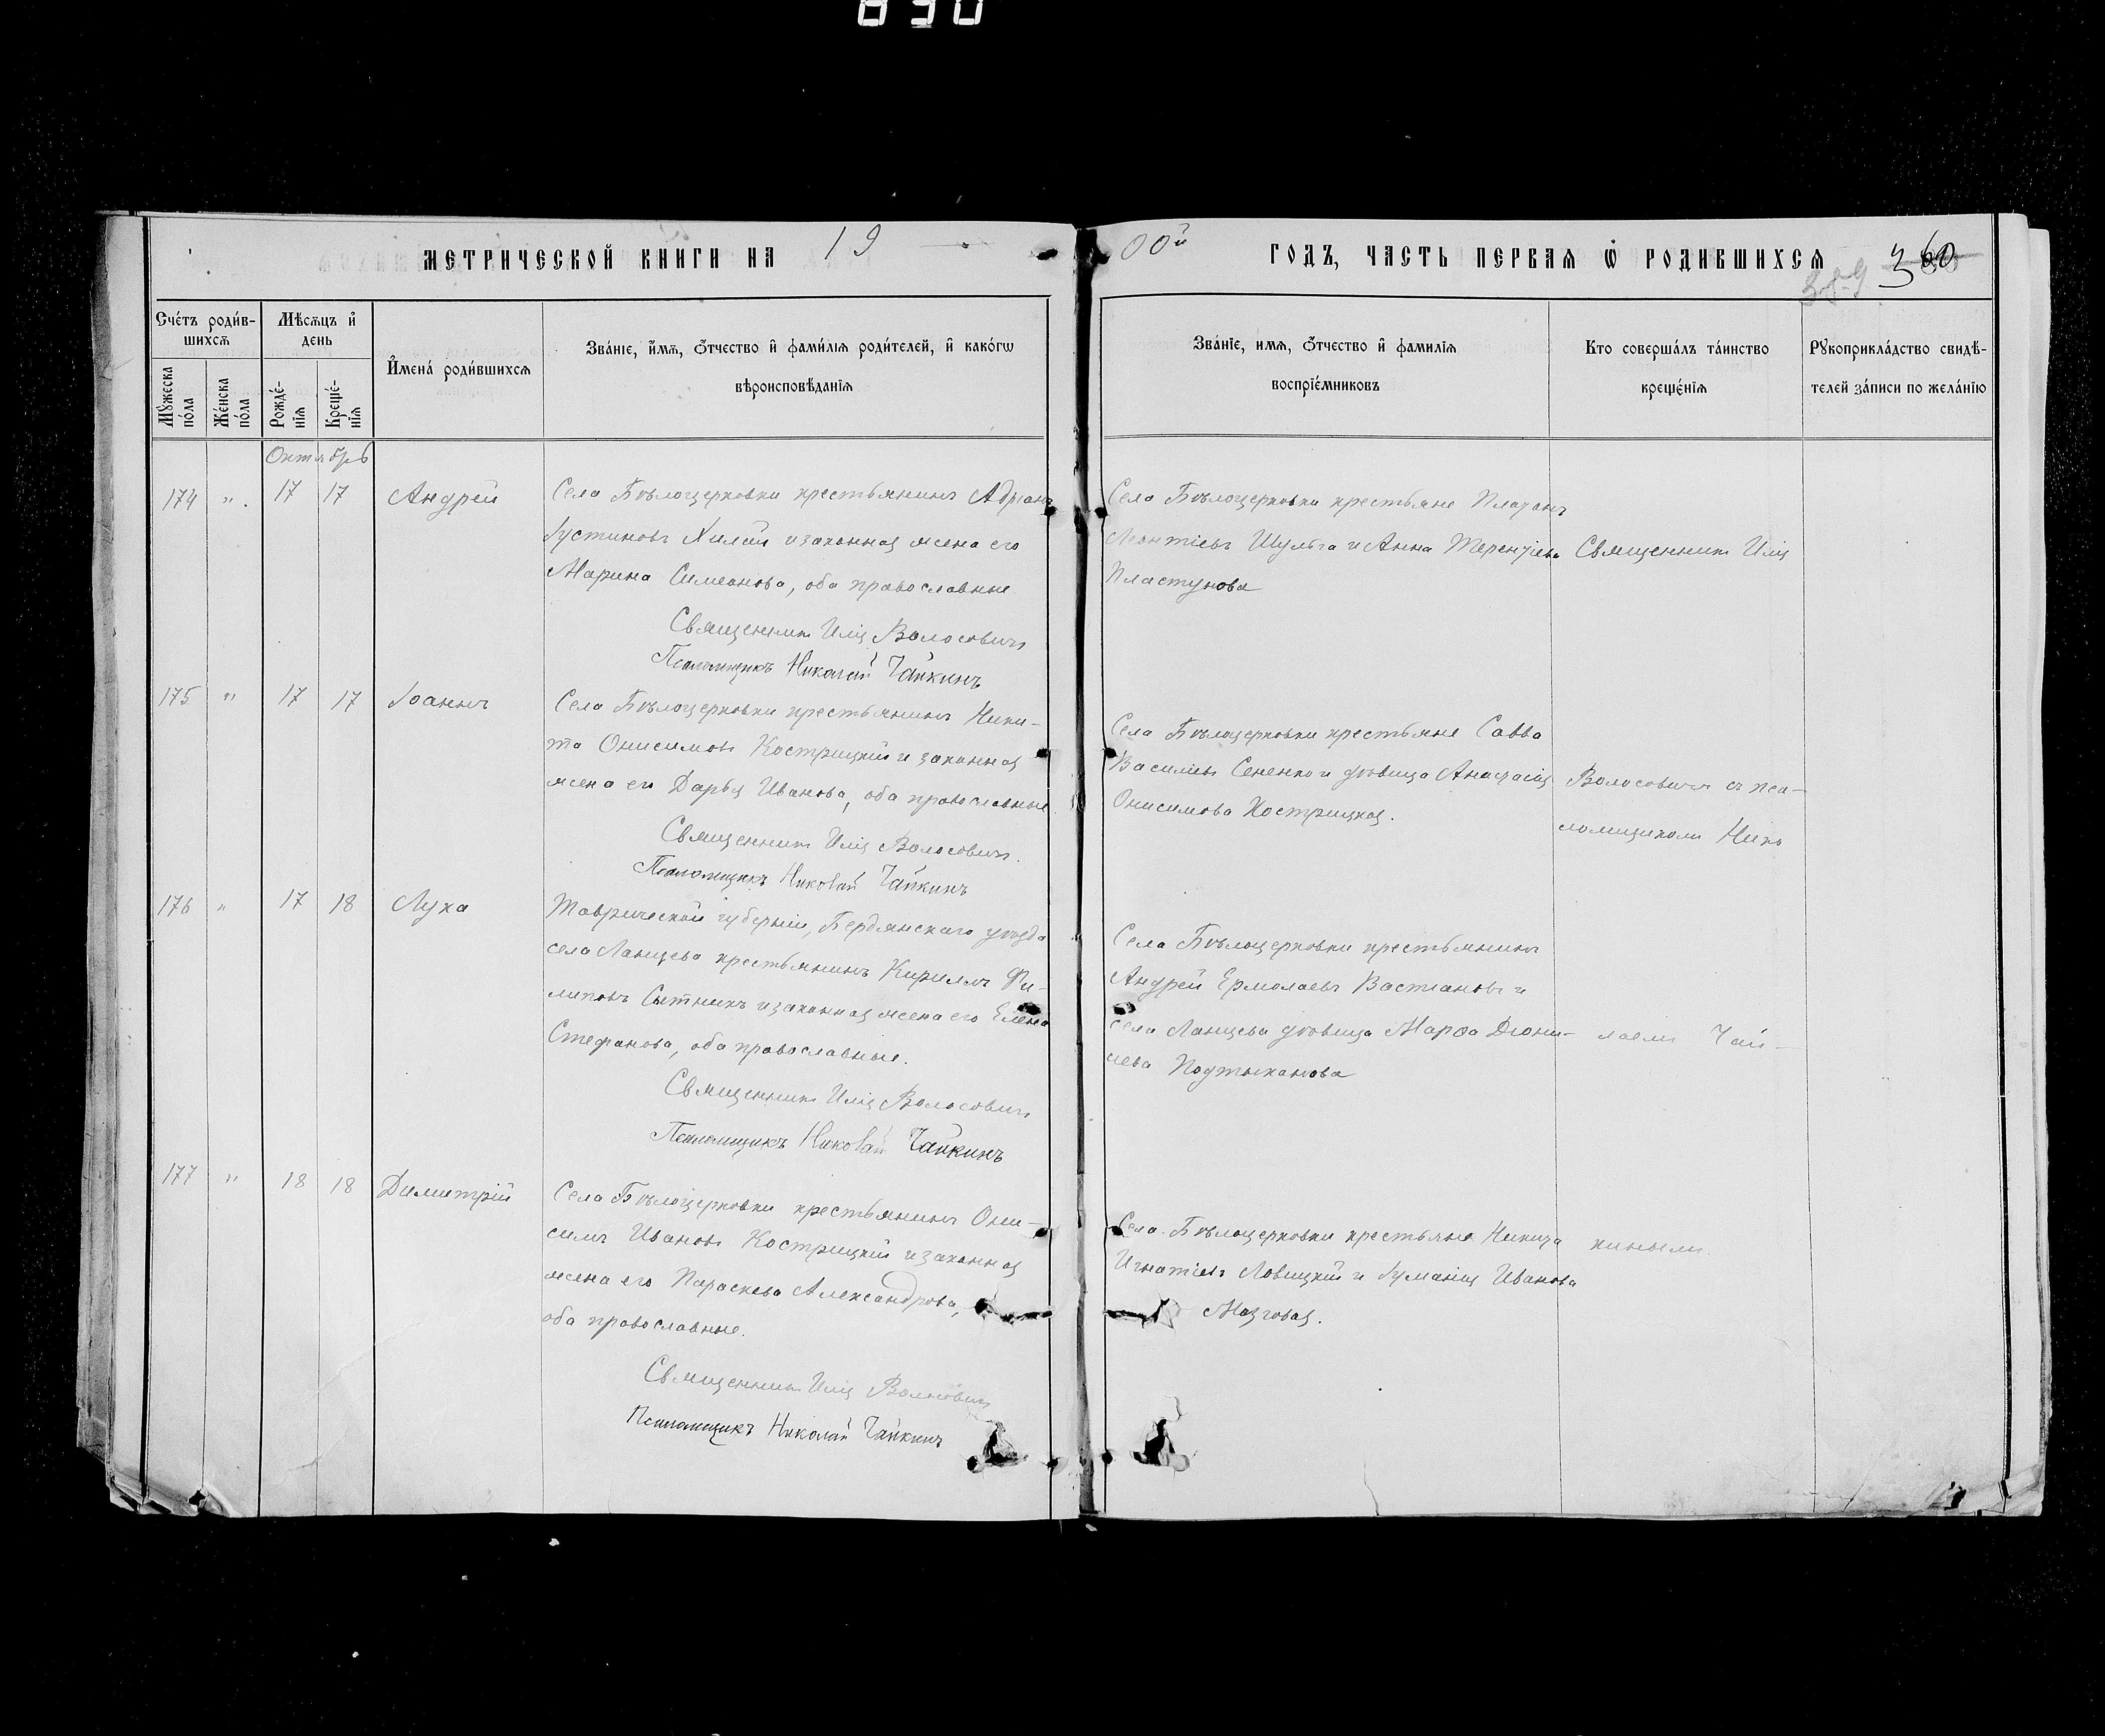 830
МЕТРИЧЕСКОЙ КНИГИ НА 19
00й ГОДЪ, ЧАСТЬ ПЕРВАЯ Ѡ РОДИВШИХСЯ 360
Сче́тъ роди́в-
шихсѧ
Мѣсѧцъ и҆
день
И҆мена̀ роди́вшихсѧ
Зва́нїе, и҆́мѧ, ѻ҆́тчество и҆ фами́лїѧ роди́телей, и҆ како́гѡ
вѣроисповѣ́данїѧ
Мꙋ́жеска
по́ла
Же́нска
по́ла
Рожде́-
нїѧ
Креще́-
нїѧ
Зва́нїе, имѧ, ѻ҆́тчество и҆ фамилїѧ
воспрїе́мниковъ
Кто соверша́лъ та́инство
креще́нїѧ
Рꙋкоприкла́дство свидѣ́-
телей за́писи по жела́нїю
Октябрь
174 " 17 17 Андрей
Села Бѣлоцерковки крестьянинъ Адріанъ
Іустиновъ Хилай и законная жена его
Марина Симеонова, оба православные
Священникъ Илія Волосовичъ
Псаломщикъ Николай Чайкинъ
Села Бѣлоцерковки крестьяне Платонъ
Леонтіевъ Шульга и Анна Терентіева
Пластунова
Священникъ Илія
175 " 17 17 Іоаннъ
Села Бѣлоцерковки крестьянинъ Ники-
та Онисимовъ Кострицкій и законная
жена его Дарья Иванова, оба православные
Священникъ Илія Волосовичъ.
Псаломщикъ Николай Чайкинъ
Села Бѣлоцерковки крестьяне Савва
Василіевъ Сененко и дѣвица Анастасія
Онисимова Кострицкая.
Волосовичъ съ пса-
ломщикомъ Нико
176 " 17 18 Лука
Таврической губерніи, Бердянскаго уѣзда
села Ланцева крестьянинъ Кириллъ Фи-
липовъ Сытникъ и законная жена его Елена
Стефанова, оба православные.
Священникъ Илія Волосовичъ
Псаломщикъ Николай Чайкинъ
Села Бѣлоцерковки крестьянинъ
Андрей Ермолаевъ Вастьановъ и
села Ланцева дѣвица Марфа Діони-
сіева Подтыканова
лаемъ Чай-
177 " 18 18 Димитрій
Села Бѣлоцерковки крестьянинъ Они-
симъ Ивановъ Кострицкій и законная
жена его Параскева Александрова,
оба православные.
Священникъ Илія Волосовичъ
Псаломщикъ Николай Чайкинъ
Села Бѣлоцерковки крестьяне Никита
Игнатіевъ Ловицкій и Іуманія Иванова
Мазговая.
кинымъ.